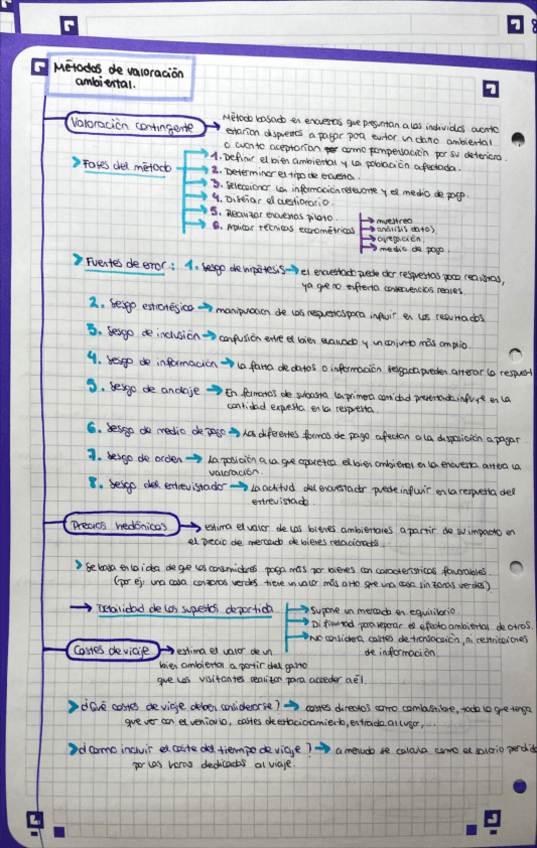 Métodos de valoración
ambiental.
Valoración contingente → Método basado en encuestas que preguntan a los individuos cuanto
estarían dispuestos a pagar para evitar un daño ambiental
o cuanto aceptarían como compensación por su deterioro.
> Fases del método
1. Definir el bien ambiental y la población afectada.
2. Determinar el tipo de encuesta.
3. Seleccionar la información relevante y el medio de pago.
4. Diseñar el cuestionario.
5. Realizar encuestas piloto.
6. Aplicar técnicas econométricas
→ muestreo
→ análisis datos
→ agregación
→ medio de pago.
> Fuentes de error: 1. Sesgo de hipótesis → el encuestado puede dar respuestas poco realistas,
ya que no enfrenta consecuencias reales.
2. Sesgo estratégico → manipulación de las respuestas para influir en los resultados
3. Sesgo de inclusión → confusión entre el bien evaluado y un conjunto más amplio.
4. Sesgo de información → la falta de datos o información sesgada pueden alterar la respuest
5. Sesgo de anclaje → En formatos de subasta la primera cantidad presentada influye en la
cantidad expuesta en la respuesta.
6. Sesgo de medio de pago → Las diferentes formas de pago afectan a la disposición a pagar.
7. Sesgo de orden → La posición a la que aparezca el bien ambiental en la encuesta altera la
valoración.
8. Sesgo del entrevistador → La actitud del encuestador puede influir en la respuesta del
entrevistado.
Precios hedónicos → estima el valor de los bienes ambientales a partir de su impacto en
el precio de mercado de bienes relacionados.
> Se basa en la idea de que los consumidores paga más por bienes con características favorables.
(por ej: una casa con zonas verdes tiene un valor más alto que una casa sin zonas verdes).
→ Debilidad de los supuestos de partida
→ Supone un mercado en equilibrio.
→ Dificultad para separar el efecto ambiental de otros.
→ No considera costes de transacción, ni restricciones
de información.
Costes de viaje → estima el valor de un
bien ambiental a partir del gasto
que los visitantes realizan para acceder a él.
> ¿Qué costes de viaje deben considerarse? → costes directos como combustible, todo lo que tenga
que ver con el vehículo, costes de estacionamiento, entrada al lugar,...
> ¿Cómo incluir el coste del tiempo de viaje? → a menudo se calcula como el salario perdido
por las horas dedicadas al viaje.